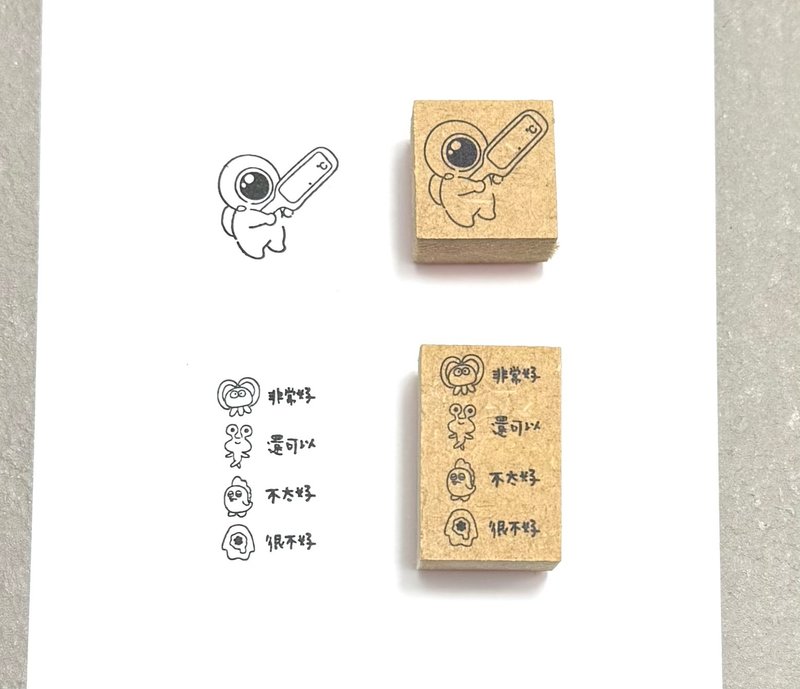 ℃
℃
非常好
還可以
不太好
很不好
非常好
還可以
不太好
很不好